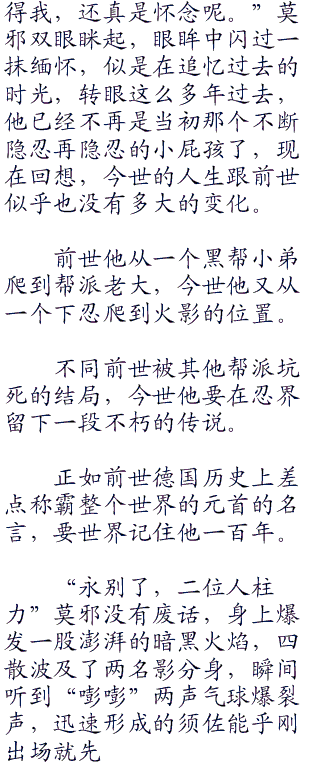 得我，还真是怀念呢。”莫
邪双眼眯起，眼眸中闪过一
抹缅怀，似是在追忆过去的
时光，转眼这么多年过去，
他已经不再是当初那个不断
隐忍再隐忍的小屁孩了，现
在回想，今世的人生跟前世
似乎也没有多大的变化。
前世他从一个黑帮小弟
爬到帮派老大，今世他又从
一个下忍爬到火影的位置。
不同前世被其他帮派坑
死的结局，今世他要在忍界
留下一段不朽的传说。
正如前世德国历史上差
点称霸整个世界的元首的名
言，要世界记住他一百年。
“永别了，二位人柱
力”莫邪没有废话，身上爆
发一股澎湃的暗黑火焰，四
散波及了两名影分身，瞬间
听到“嘭嘭”两声气球爆裂
声，迅速形成的须佐能乎刚
出场就先